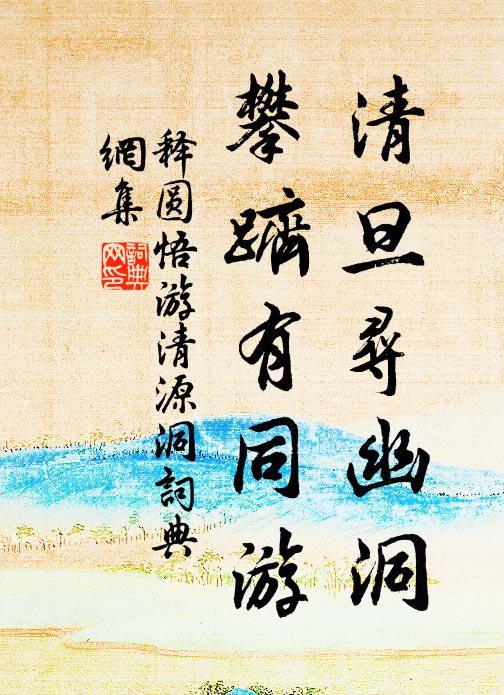 清旦尋幽洞
攀躋有同游
释圆悟游清源洞詞典
網集
詞典
网印